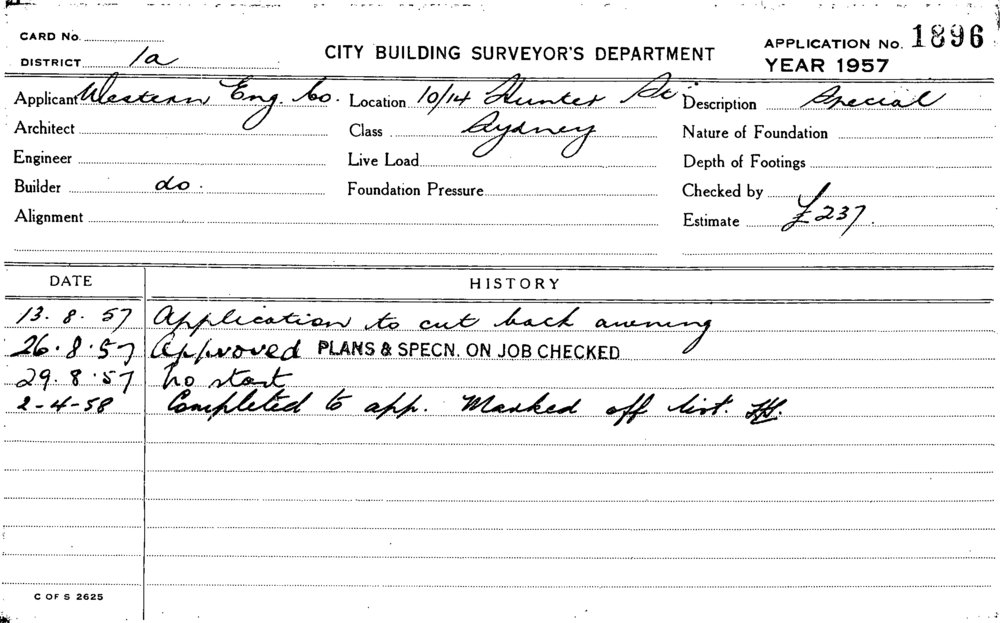 CARD No.
DISTRICT 1a
CITY BUILDING SURVEYOR'S DEPARTMENT
APPLICATION No. 1896
YEAR 1957
Applicant Western Eng. Co. Location 10/14 Hunter St Description Special
Architect Class Sydney Nature of Foundation
Engineer Live Load Depth of Footings
Builder do. Foundation Pressure Checked by
Alignment Estimate £237.
DATE HISTORY
13. 8. 57 Application to cut back awning
26.8.57 Approved PLANS & SPECN. ON JOB CHECKED
29. 8. 57 No start
2-4-58 Completed to app. Marked off list.
C OF S 2625